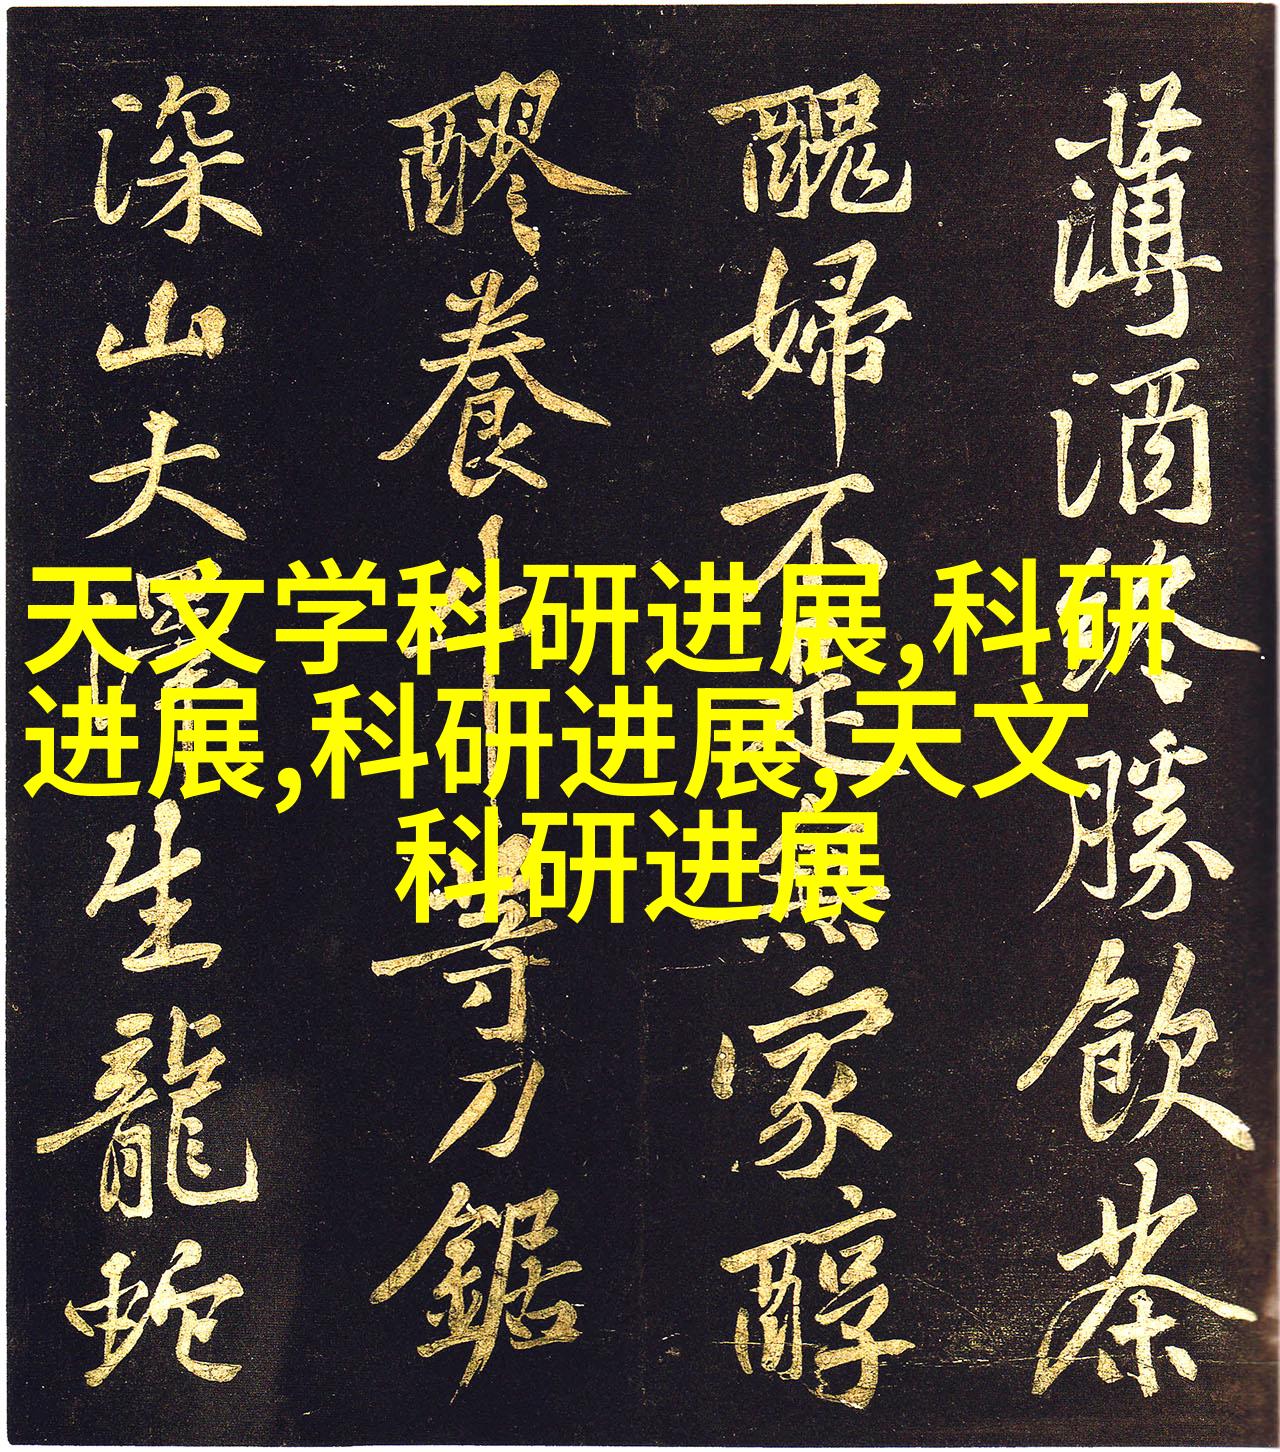 薄酒終勝飲茶
醜婦不是無家醇
醪養牛等刀鋸
深山大澤生龍蛇
天文学科研进展,科研
进展,科研进展,天文
科研进展